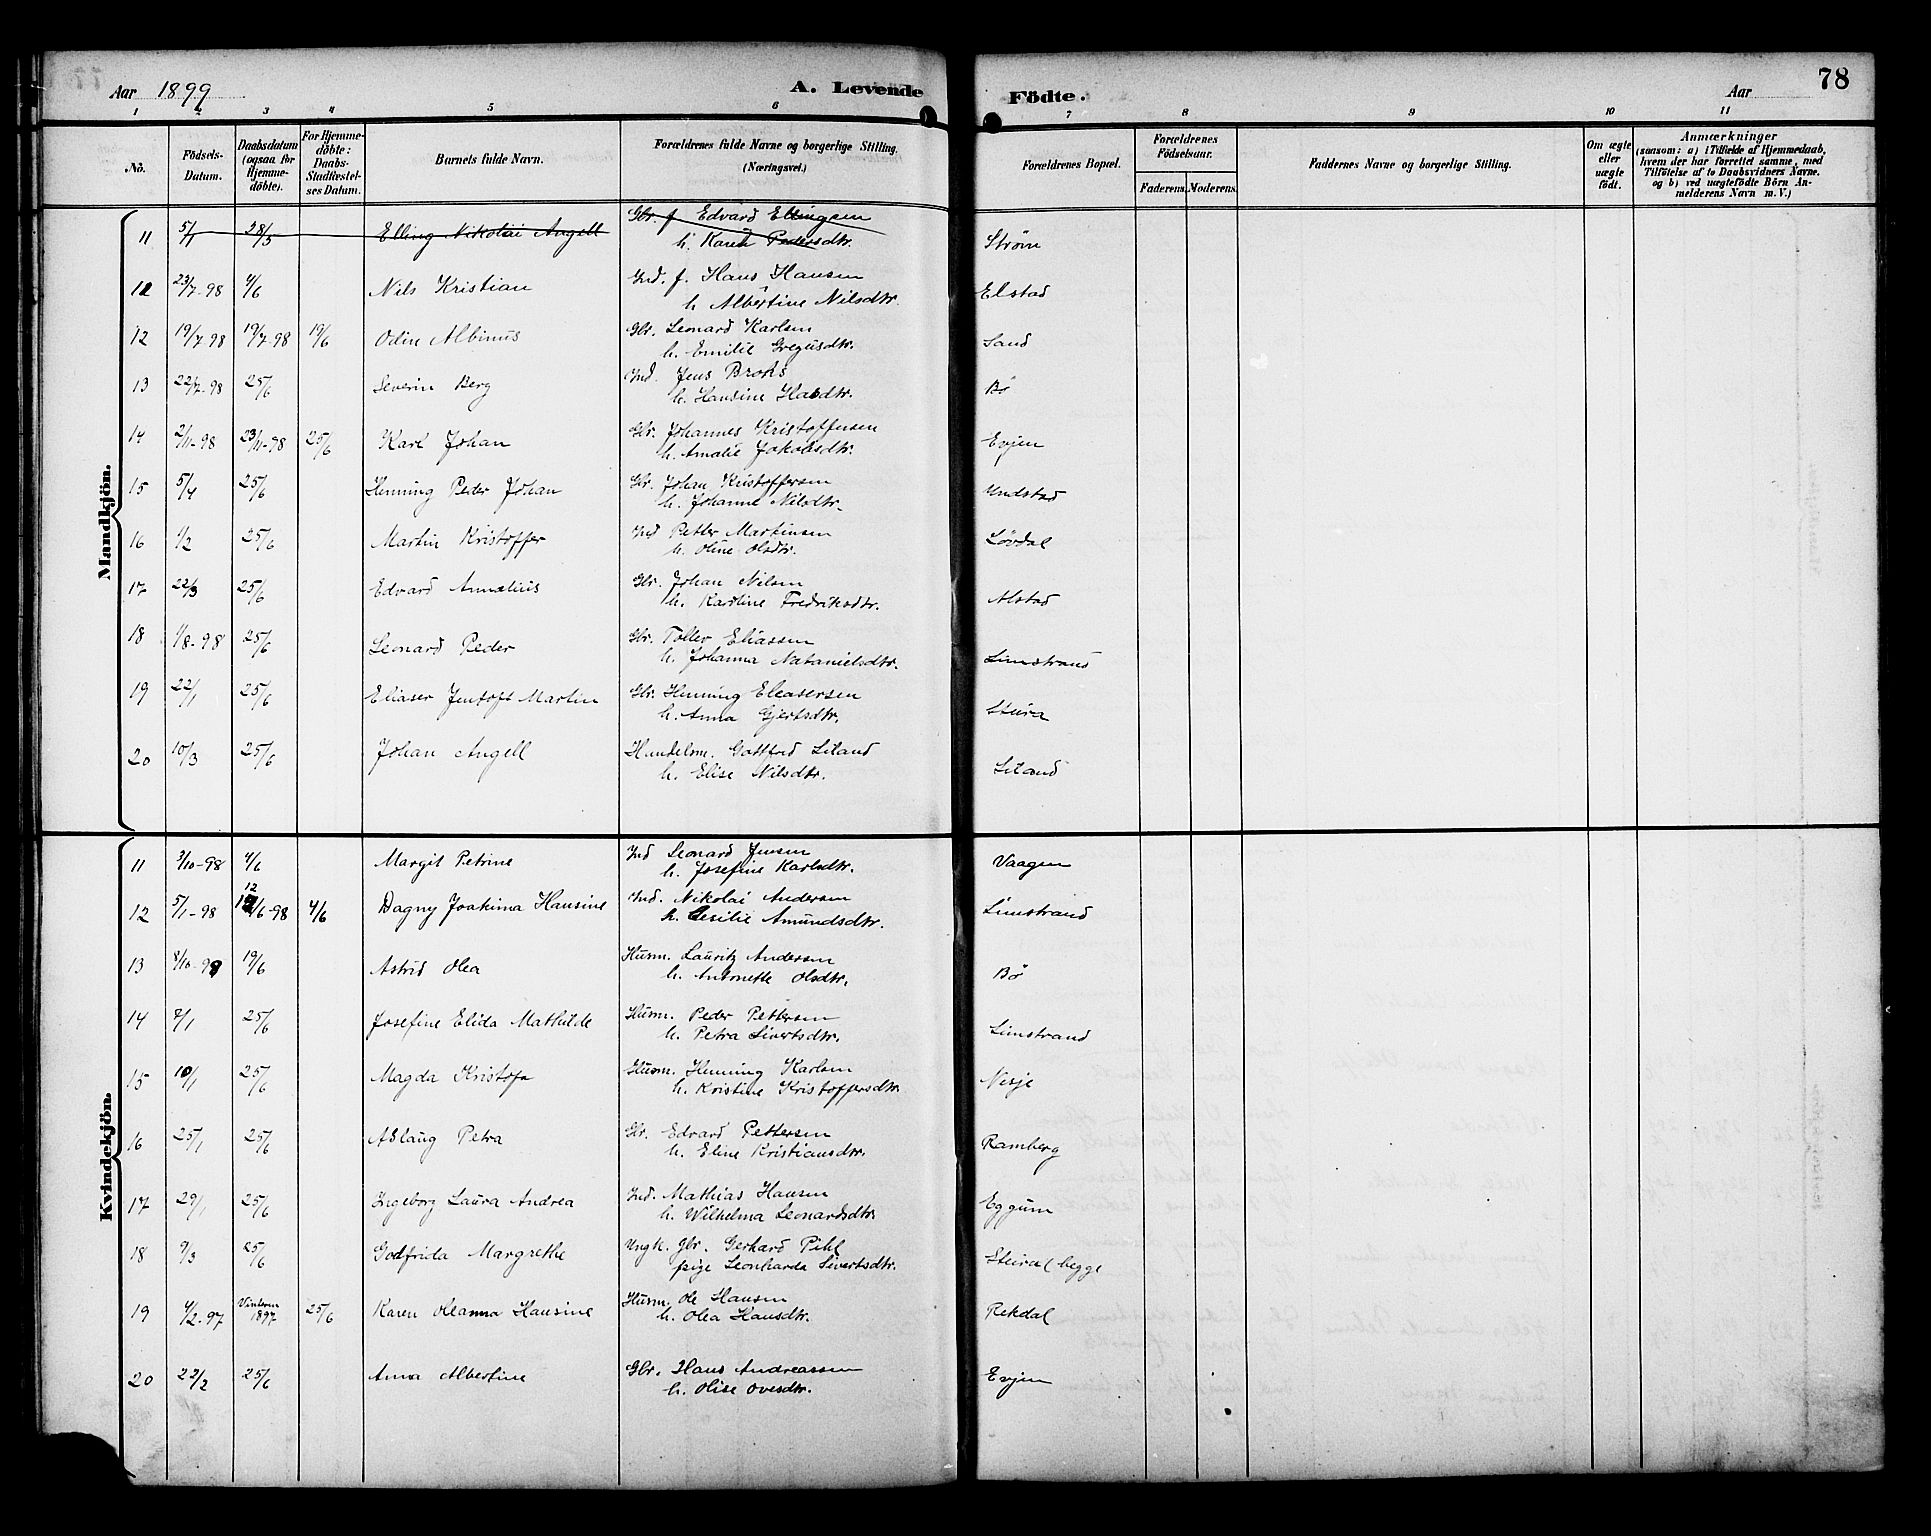 Aar 1899 A. Levende Födte. Aar 78
1 2 3 4 5 6 7 8 9 10 11
No. Födsels-Datum. Daabsdatum (ogsaa for Hjemme-döbte). For Hjemme-döbte: Daabs-Stadfæstel-ses Datum. Barnets fulde Navn. Forældrenes fulde Navne og borgerlige Stilling. (Næringsvei.) Forældrenes Bopæl. Forældrenes Födselsaar. Faderens. Moderens. Faddernes Navne og borgerlige Stilling. Om ægte eller uægte födt. Anmærkninger (saasom: a) i Tilfælde af Hjemmedaab, hvem der har forrettet samme, med Tilföielse af to Daabsvidners Navne. og b) ved uægtefödte Börn An-melderens Navn m. V.)
Mandkjön.
11 5/1 28/5 Elling Nikolai Angell Gbr. f Edvard Ellingsen Strøm
h. Karen Pedersdtr.
11 23/7-98 4/6 Nils Kristian Ind. f. Hans Hansen Elstad
h Albertine Nilsdtr.
12 19/7-98 19/7-98 19/6 Odin Albinus Gbr. Leonard Karlsen Sand
h. Emilie Gregusdtr.
13 22/7-98 25/6 Severin Berg Ind. Jens Broks Bö
h. Hansine Hansdtr.
14 2/11-98 23/11-98 25/6 Karl Johan Gbr. Johannes Kristoffersen Evjen
h. Amalie Jakobsdtr.
15 5/4 25/6 Henning Peder Johan Gbr. Johan Kristoffersen Undstad
h. Johanna Nilsdtr.
16 1/2 25/6 Martin Kristoffer Ind Petter Martinsen Lövdal
h. Oline Olsdtr.
17 22/3 25/6 Edvard Annælius Gbr. Johan Nilsen Alstad
h. Karoline Fredriksdtr.
18 1/8-98 25/6 Leonard Peder Gbr. Toller Eliassen Limstrand
h. Johanna Natanielsdtr.
19 22/1 25/6 Eliaser Jentoft Martin Gbr. Henning Eleasersen Steira
h. Anna Gjertsdtr.
20 10/3 25/6 Johan Angell Handelsm. Gottfred Liland Liland
h. Elise Nilsdtr.
Kvindekjön.
11 3/10-98 4/6 Margit Petrine Ind Leonard Jensen Vaagen
h. Josefine Karlsdtr.
12 5/1-98 12/6-98 4/6 Dagny Joakima Hansine Ind. Nikolai Andersen Limstrand
h. Cesilie Amundsdtr.
13 8/10-98 19/6 Astrid Olea Husm. Lauritz Andersen Bö
h. Antonette Olsdtr.
14 2/1 25/6 Josefine Elida Mathilde Husm. Peder Pettersen Limstrand
h. Petra Sivertsdtr.
15 10/1 25/6 Magda Kristofa Husm. Henning Karlsen Nesje
h. Kristine Kristoffersdtr.
16 25/1 25/6 Aslaug Petra Gbr. Edvard Pettersen Ramberg
h. Eline Kristiansdtr.
17 29/1 25/6 Ingeborg Laura Andrea Ind. Mathias Hansen Eggum
h. Wilhelma Leonardsdtr.
18 9/3 25/6 Godfrida Margrethe Ungk. Gbr. Gerhard Pihl Steira (begge
pige Leonharda Sivertsdtr.
19 4/2-97 Vinteren 1897 25/6 Karen Oleanna Hansine Husm. Ole Hansen Rekdal
h. Olea Hansdtr.
20 22/2 25/6 Anna Albertine Gbr. Hans Andreassen Evjen
h. Olise Ovesdtr.